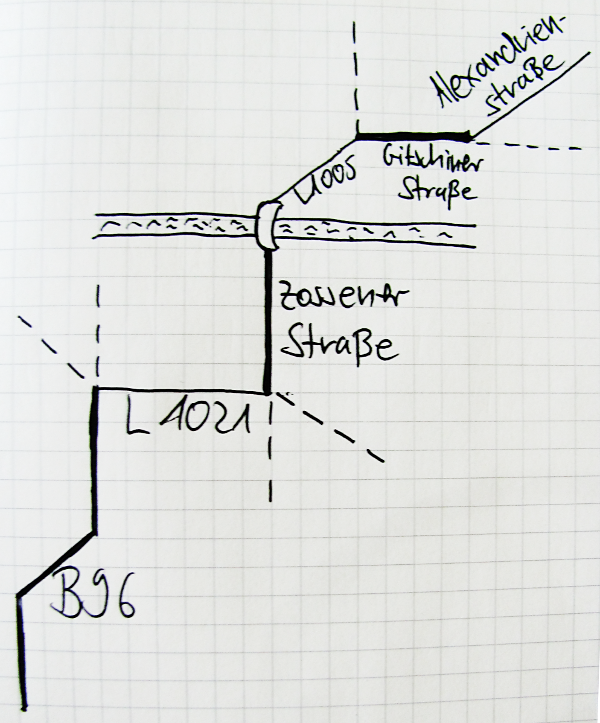 Alexandrien-
straße
L1005
Gitschiner
Straße
Zossener
Straße
L 1021
B96